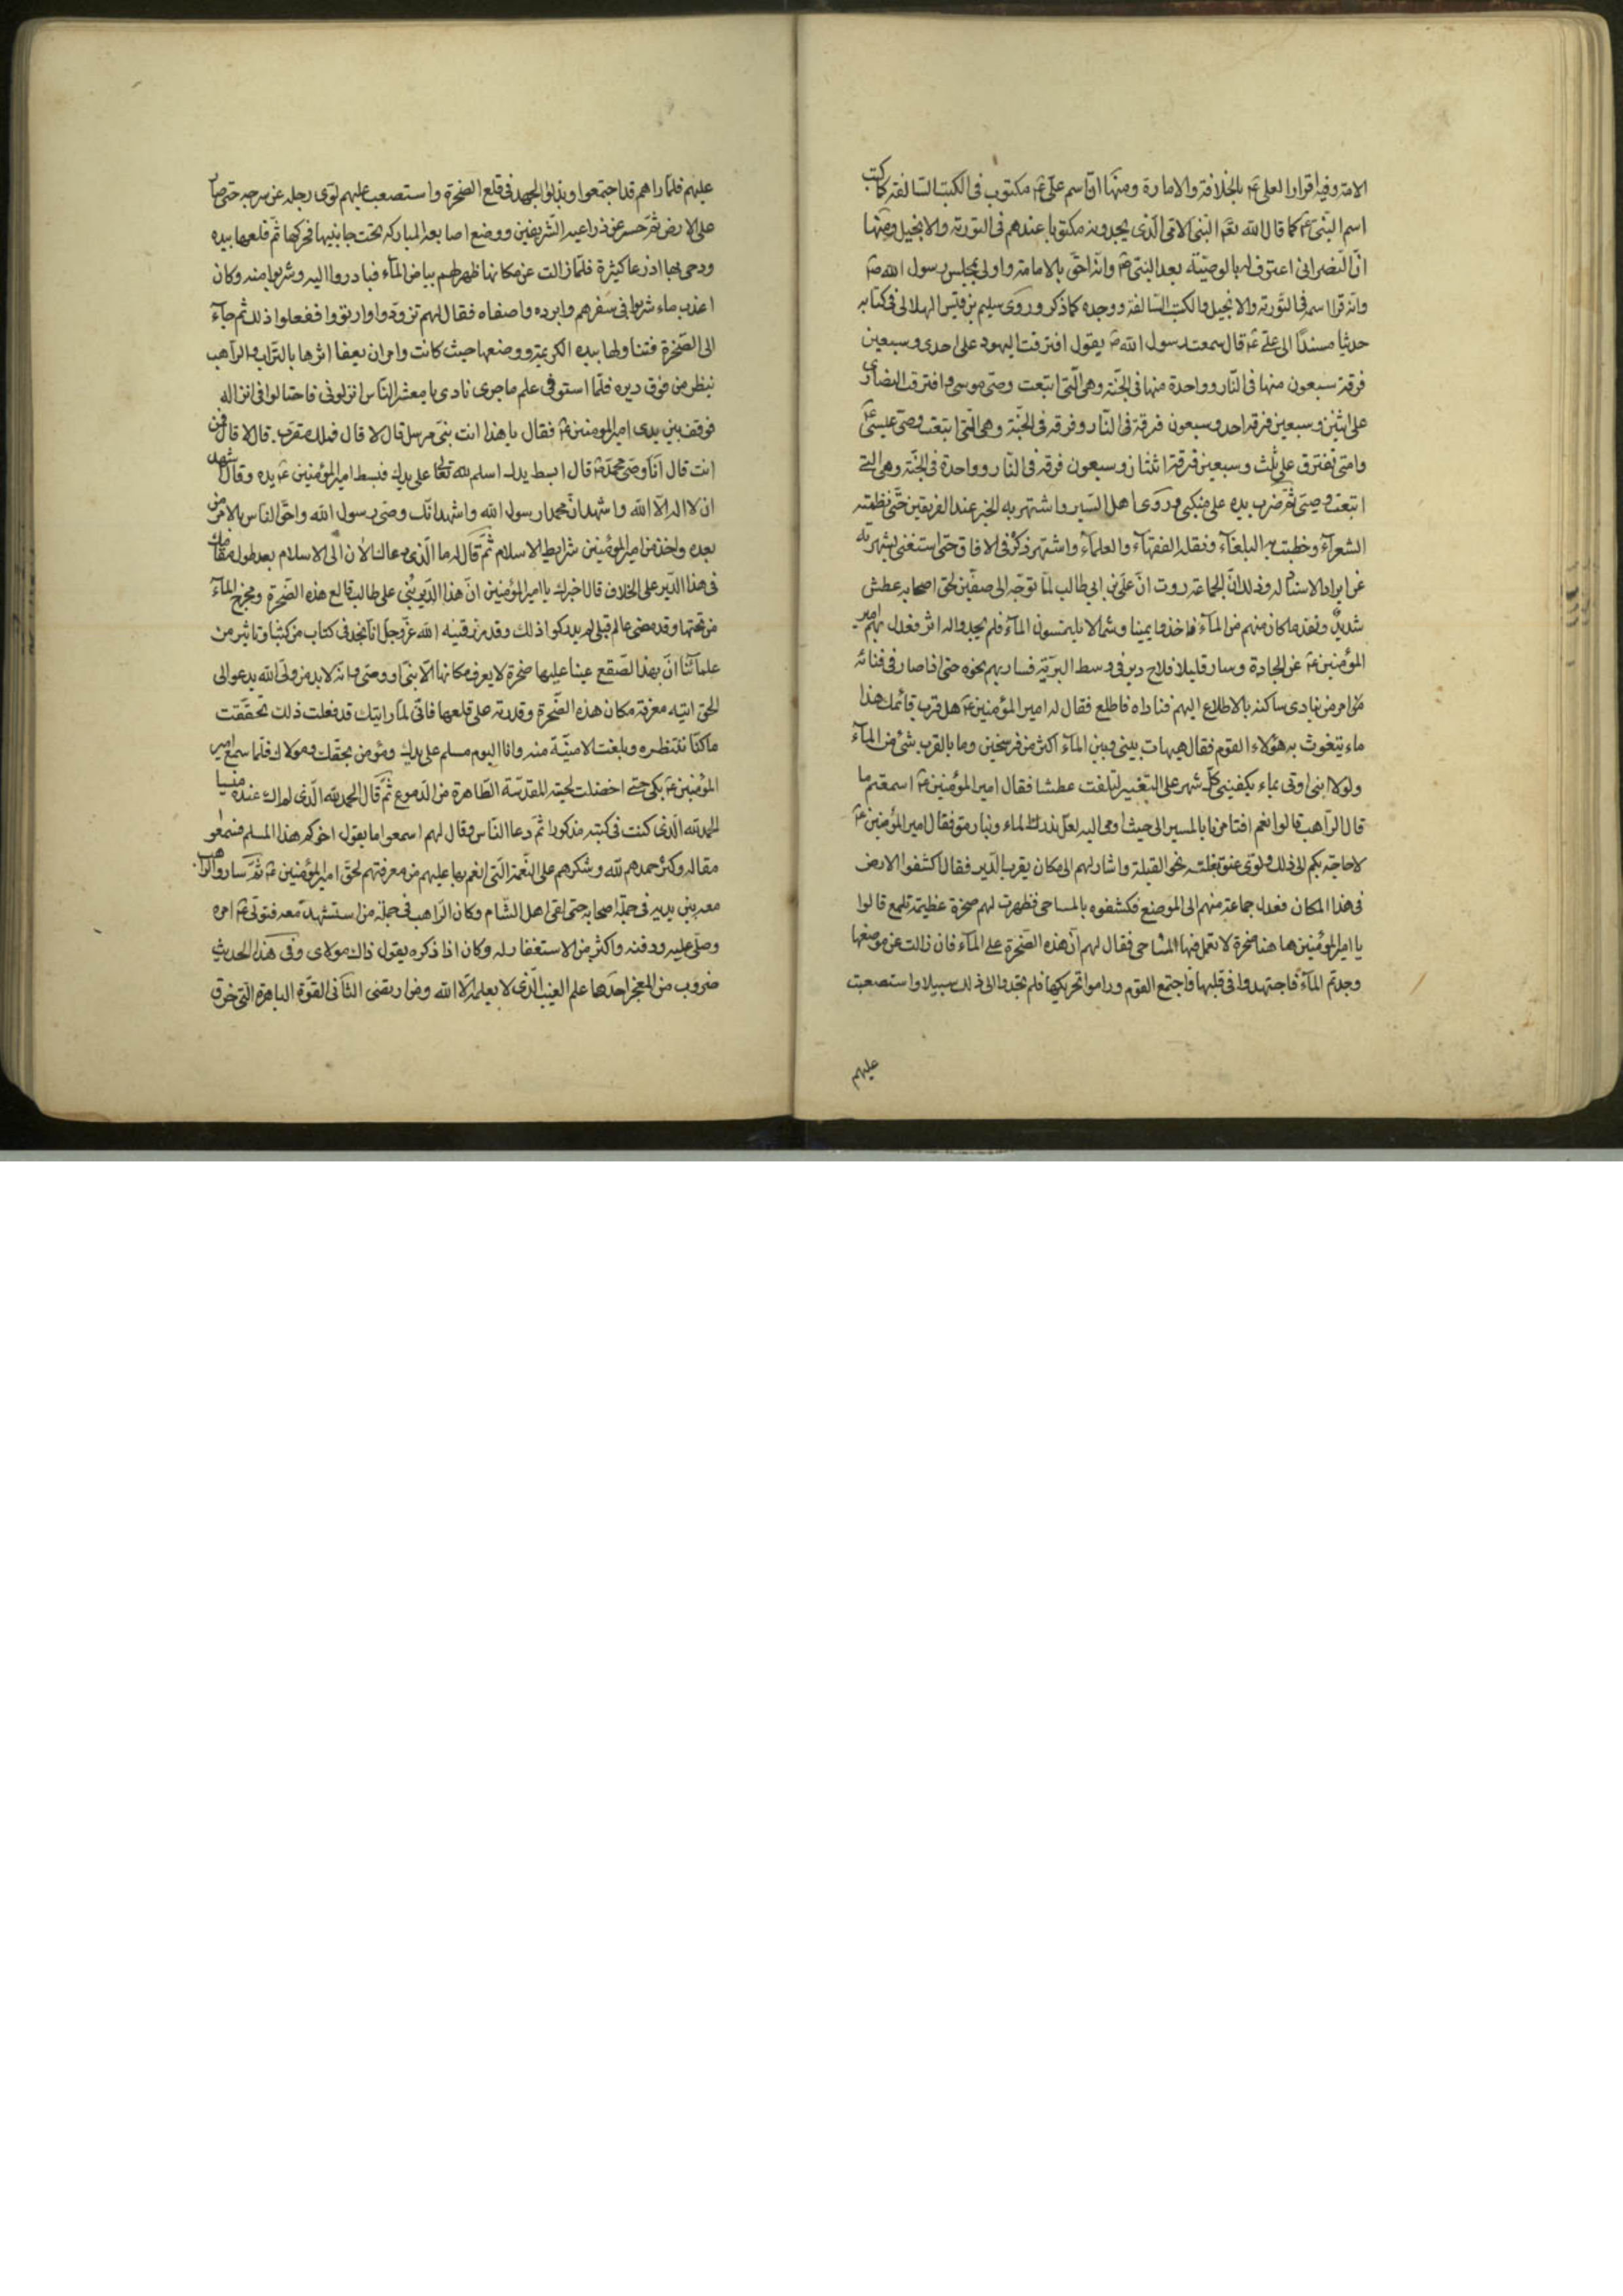 الامة وفيه اقرارا لعلى ع بالخلافة والامارة ومنها ان اسم على ع مكتوب فى الكتب السالفة كما كتب
اسم النبى ع كما قال الله تع النبى الامى الذى يجدونه مكتوبا عندهم فى التورية والانجيل ومنها
ان النصرانى اعترف له بالوصية بعد النبى ص وانه احق بالامامة واولى بمجلس رسول الله ص
وانه قرا اسمه فى التورية والانجيل والكتب السالفة ووجده كما ذكر وروى سليم بن قيس الهلالى فى كتابه
حديثا مسندا الى على ع قال سمعت رسول الله ص يقول افترقت اليهود على احدى وسبعين
فرقة سبعون منها فى النار وواحدة منها فى الجنة وهى التى اتبعت وصى موسى وافترقت النصارى
على اثنين وسبعين فرقة احد وسبعون فرقة فى النار وفرقة فى الجنة وهى التى اتبعت وصى عيسى ع
وامتى تفترق على ثلث وسبعين فرقة اثنتان وسبعون فرقة فى النار وواحدة فى الجنة وهى التى
اتبعت وصيى ثم ضرب بيده على منكبى وروى اهل السير واشتهر به الخبر عند الفريقين حتى نظمته
الشعراء وخطبت به البلغاء ونقله الفقهاء والعلماء واشتهر ذكره فى الافاق حتى استغنى بشهرته
عن ايراد الاسناد له وذلك ان الجماعة روت ان على بن ابى طالب لما توجه الى صفين لحق اصحابه عطش
شديد ونفد ما كان منهم من الماء فاخذوا يمينا وشمالا يلتمسون الماء فلم يجدوا له اثر فعدل بهم امير
المؤمنين ع عن الجادة وسار قليلا فلاح دير فى وسط البرية فسار بهم نحوه حتى اذا صار فى فنائه
امر من نادى ساكنه بالاطلاع اليهم فناداه فاطلع فقال له امير المؤمنين ع هل قرب قائمك هذا
ماء يتغوث به هؤلاء القوم فقال هيهات بينى وبين الماء اكثر من فرسخين وما بالقرب شئ من الماء
ولولا اننى اوتى بماء يكفينى كل شهر على التقتير لتلفت عطشا فقال امير المؤمنين ع اسمعتم ما
قال الراهب قالوا نعم افتامرنا بالمسير الى حيث اومى اليه لعل ندرك الماء وبنا رمق فقال امير المؤمنين ع
لا حاجة بكم الى ذلك ولوى عنق بغلته نحو القبلة واشار بهم الى مكان بقرب الدير فقال اكشفوا الارض
فى هذا المكان فعدل جماعة منهم الى الموضع فكشفوه بالمساحى فظهرت لهم صخرة عظيمة تلمع قالوا
يا امير المؤمنين ها هنا صخرة لا تعمل فيها المساحى فقال لهم ان هذه الصخرة على الماء فان زالت عن موضعها
وجدتم الماء فاجتهدوا فى قلبها فاجتمع القوم وراموا تحريكها فلم يجدوا الى ذلك سبيلا واستصعبت
عليهم
عليهم فلما راهم قد اجتمعوا وبذلوا الجهد فى قلع الصخرة واستصعب عليهم لوى رجله عن سرجه حتى صار
على الارض ثم حسر عن ذراعيه الشريفين ووضع اصابعه المباركة تحت جانبها فحركها ثم قلعها بيده
ودحى بها اذرعا كثيرة فلما زالت عن مكانها ظهر لهم بياض الماء فبادروا اليه وشربوا منه وكان
اعذب ماء شربوا فى سفرهم وابرده واصفاه فقال لهم تزودوا وارتووا ففعلوا ذلك ثم جاء
الى الصخرة فتناولها بيده الكريمة ووضعها حيث كانت وامر ان يعفا اثرها بالتراب والراهب
ينظر من فوق ديره فلما استوفى علم ماجرى نادى يا معشر الناس انزلونى فاحتالوا فى انزاله
فوقف بين يدى امير المؤمنين ع فقال يا هذا انت نبى مرسل قال لا قال فملك مقرب قال لا قال فمن
انت قال انا وصى محمد ص قال ابسط يدك اسلم لله تعالى على يديك فبسط امير المؤمنين ع يده وقال اشهد
ان لا اله الا الله واشهد ان محمدا رسول الله واشهد انك وصى رسول الله واحق الناس بالامر من
بعده واخذ من امير المؤمنين شرايط الاسلام ثم قال له ما الذى دعاك الان الى الاسلام بعد طول مقامك
فى هذا الدير على الخلاف قال اخبرك يا امير المؤمنين ان هذا الدير بنى على طالب قالع هذه الصخرة ومخرج الماء
من تحتها وقد مضى عالم قبلى لم يدركوا ذلك وقد رزقنيه الله عز وجل انا نجد فى كتاب من كتبنا وتاثير من
علمائنا ان بهذا الصقع عينا عليها صخرة لا يعرف مكانها الا نبى او وصى وانه لا بد من ولى الله يدعو الى
الحق ايته معرفة مكان هذه الصخرة وقدرته على قلعها فانى لما رايتك قد فعلت ذلك تحققت
ما كنا ننتظره وبلغت الامنية منه وانا اليوم مسلم على يديك ومؤمن بحقك ومولاك فلما سمع امير
المؤمنين ع بكى حتى اخضلت لحيته المقدسة الطاهرة من الدموع ثم قال الحمد لله الذى لم اك عنده منسيا
الحمد لله الذى كنت فى كتبه مذكورا ثم دعا الناس وقال لهم اسمعوا ما يقول اخوكم هذا المسلم فسمعوا
مقاله وكثر حمدهم لله وشكرهم على النعمة التى انعم بها عليهم من معرفتهم لحق امير المؤمنين ع ثم ساروا والراهب
معه بين يديه فى جملة اصحابه حتى لقى اهل الشام وكان الراهب فى جملة من استشهد معه فتولى ع امره
وصلى عليه ودفنه واكثر من الاستغفار له وكان اذا ذكره يقول ذاك مولاى وفى هذا الحديث
ضروب من المعجز احدها علم الغيب الذى لا يعلمه الا الله ومن ارتضى الثانى القوة الباهرة التى خرق